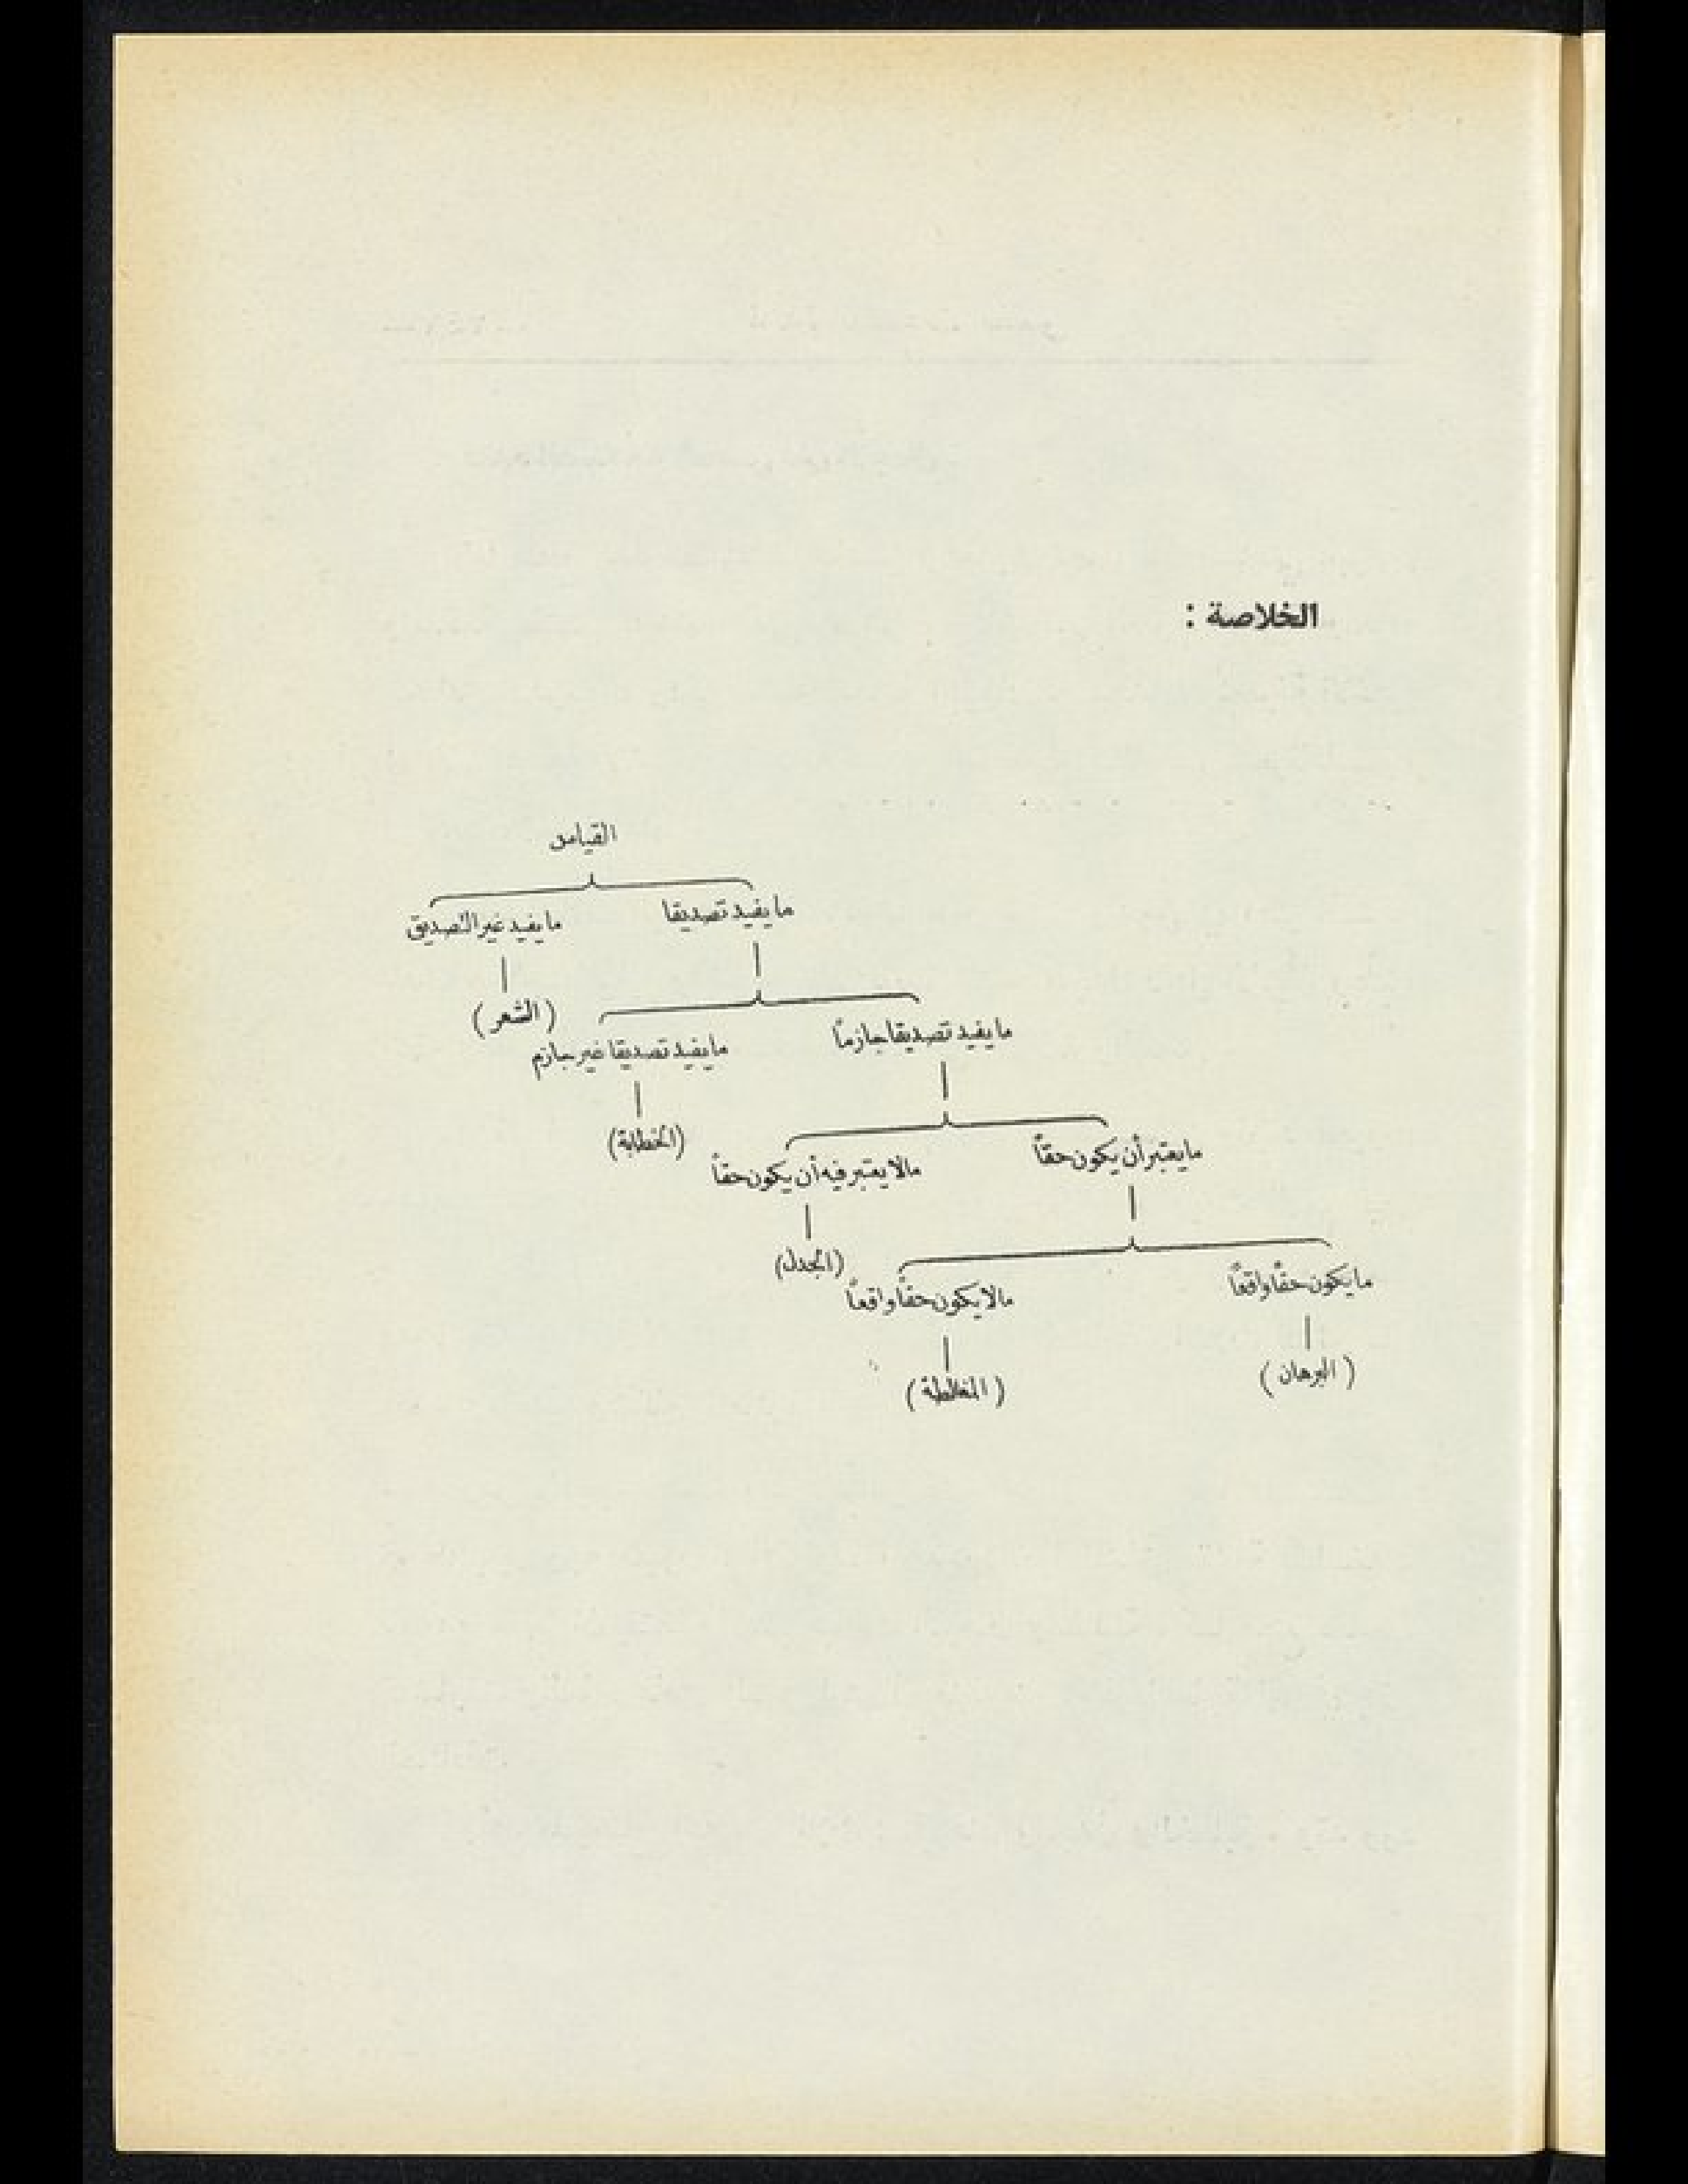 الخلاصة :
القياس
ما يفيد تصديقا
ما يفيد غير التصديق
(الشعر)
ما يفيد تصديقا جازماً
ما يفيد تصديقا غير جازم
(الخطابة)
ما يعتبر أن يكون حقاً
مالا يعتبر فيه أن يكون حقاً
(الجدل)
ما يكون حقاً واقعاً
مالا يكون حقاً واقعاً
(البرهان)
(المغالطة)